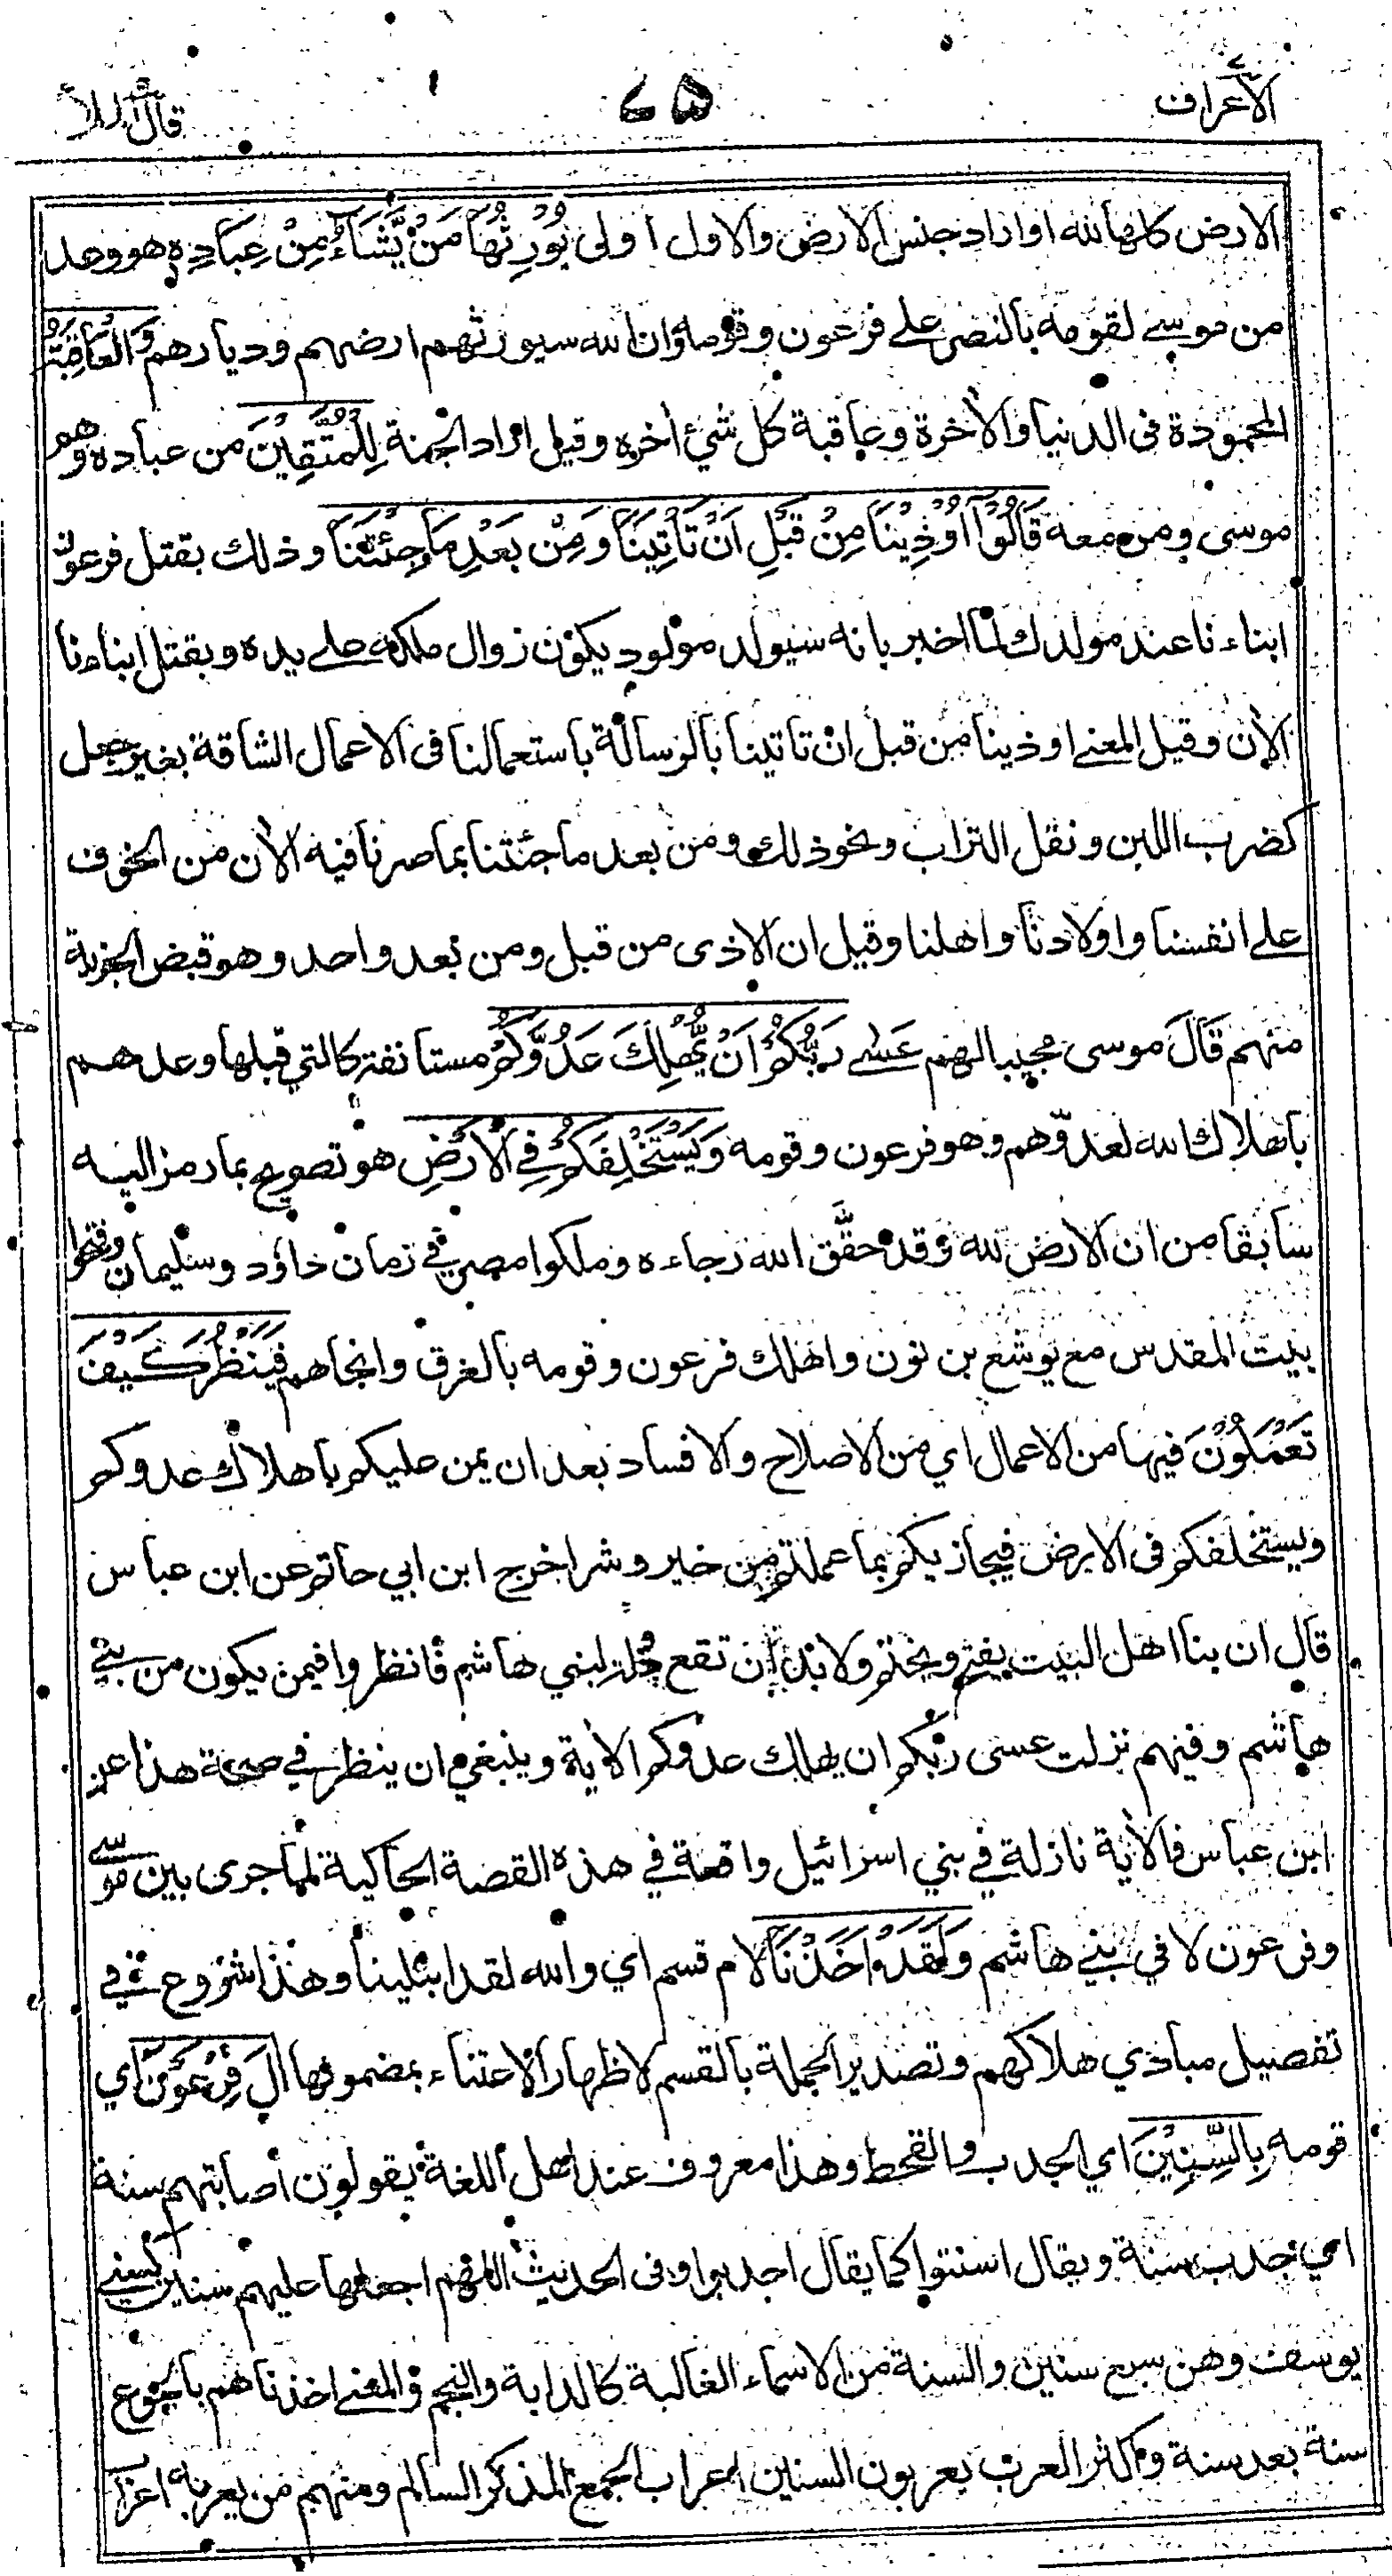 الاعراف ٧٥ قال الملأ
الارض كلها لله او اراد جنس الارض والاول اولى يُوْرِثُهَا مَنْ يَّشَآءُ مِنْ عِبَادِهٖ هو وعد
من موسى لقومه بالنصر على فرعون وقومه وان الله سيورثهم ارضهم وديارهم وَالْعَاقِبَةُ
المحمودة فى الدنيا والاخرة وعاقبة كل شئ اخره وقيل اراد الجنة لِلْمُتَّقِيْنَ من عباده وهم
موسى ومن معه قَالُوْٓا اُوْذِيْنَا مِنْ قَبْلِ اَنْ تَاْتِيَنَا وَمِنْۢ بَعْدِ مَا جِئْتَنَا وذلك بقتل فرعون
ابناءنا عند مولدك لما اخبر بانه سيولد مولود يكون زوال ملكه على يده وبقتل ابناءنا
الاٰن وقيل المعنى اوذينا من قبل ان تاتينا بالرسالة باستعمالنا فى الاعمال الشاقة بغير جعل
كضرب اللبن ونقل التراب ونحو ذلك ومن بعد ما جئتنا بما صرنا فيه الاٰن من الخوف
على انفسنا واولادنا واهلنا وقيل ان الاذى من قبل ومن بعد واحد وهو قبض الجزية
منهم قَالَ موسى مجيبا لهم عَسٰى رَبُّكُمْ اَنْ يُّهْلِكَ عَدُوَّكُمْ مستانفة كالتي قبلها وعدهم
باهلاك الله لعدوّهم وهو فرعون وقومه وَيَسْتَخْلِفَكُمْ فِي الْاَرْضِ هو تصريح بما رمز اليه
سابقا من ان الارض لله وقد حقَّق الله رجاءه وملكوا مصر في زمان داؤد وسليمان وفتحوا
بيت المقدس مع يوشع بن نون واهلك فرعون وقومه بالغرق وانجاهم فَيَنْظُرَ كَيْفَ
تَعْمَلُوْنَ فيها من الاعمال اي من الاصلاح والافساد بعد ان يمن عليكم باهلاك عدوكم
ويستخلفكم فى الارض فيجازيكم بما عملتم من خير وشر اخرج ابن ابي حاتم عن ابن عباس
قال ان بنا اهل البيت يفتح ويختم ولا بد ان تقع دولة لبني هاشم فانظروا فيمن يكون من بني
هاشم وفيهم نزلت عسى ربكم ان يهلك عدوكم الاٰية وينبغي ان ينظر في صحة هذا عن
ابن عباس فالاٰية نازلة في بني اسرائيل واقعة في هذه القصة الحاكية لما جرى بين موسى
وفرعون لا في بني هاشم وَلَقَدْ اَخَذْنَا لام قسم اي والله لقد ابتلينا وهذا شروع في
تفصيل مبادي هلاكهم وتصدير الجملة بالقسم لاظهار الاعتناء بمضمونها اٰلَ فِرْعَوْنَ اي
قومه بِالسِّنِيْنَ اي الجدب والقحط وهذا معروف عند اهل اللغة يقولون اصابتهم سنة
اي جدب سنة ويقال اسنتوا كما يقال اجدبوا وفى الحديث اللهم اجعلها عليهم سنين كسني
يوسف وهن سبع سنين والسنة من الاسماء الغالبة كالدابة والنجم والمعنى اخذناهم بالجوع
سنة بعد سنة واكثر العرب يعربون السنين اعراب الجمع المذكر السالم ومنهم من يعربه اعراب